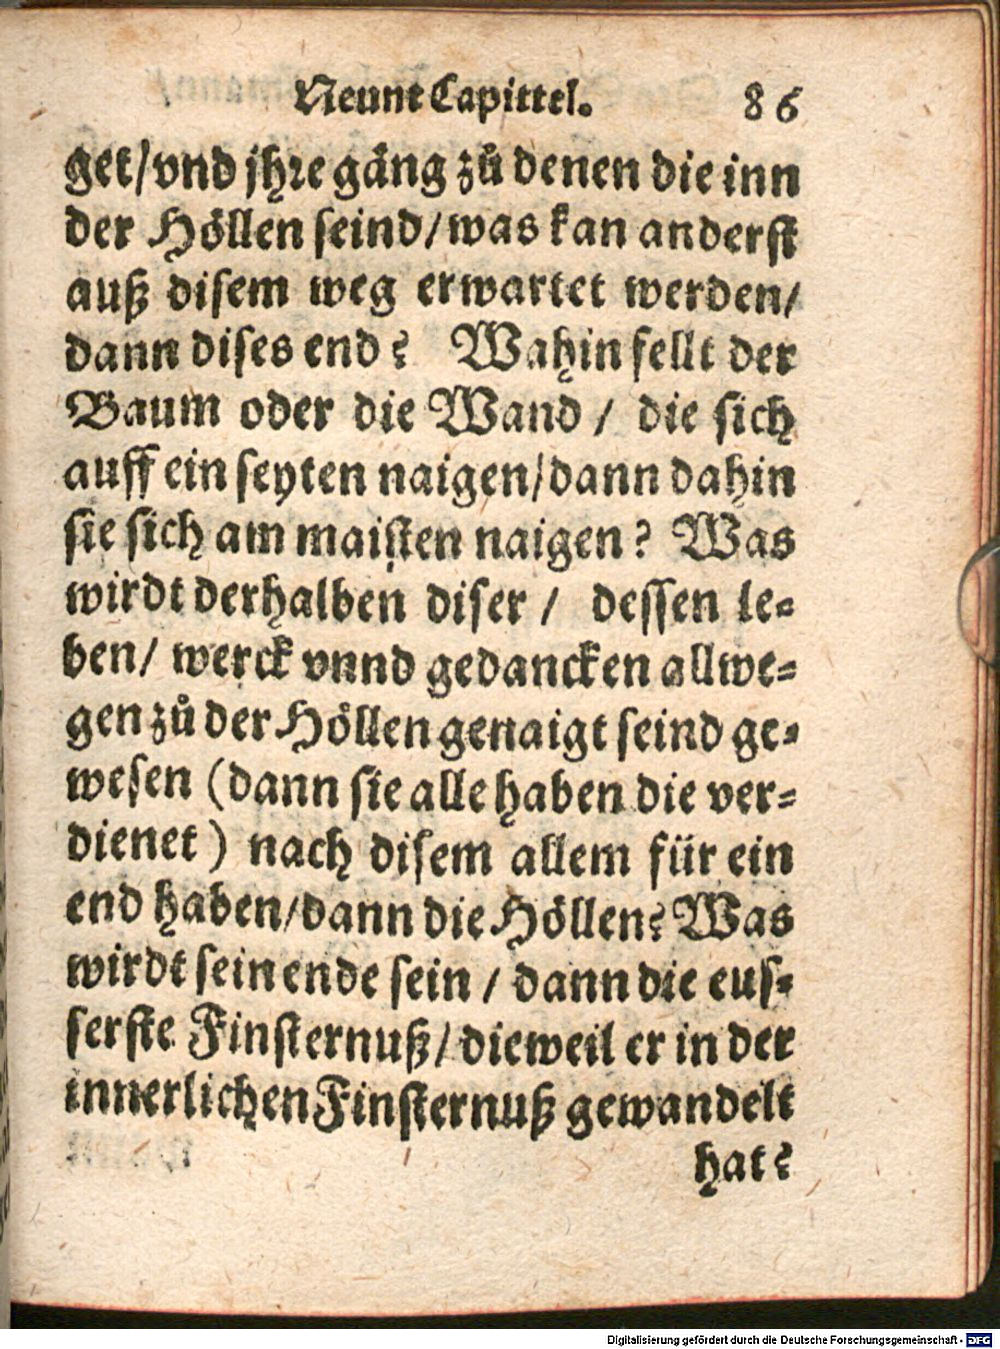 Neunt Capittel. 86
get/vnd jhre gäng zů denen die inn
der Höllen seind/was kan anderst
auß disem weg erwartet werden/
dann dises end? Wahin fellt der
Baum oder die Wand / die sich
auff ein seyten naigen/dann dahin
sie sich am maisten naigen? Was
wirdt derhalben diser / dessen le-
ben/ werck vnnd gedancken allwe-
gen zů der Höllen genaigt seind ge-
wesen (dann sie alle haben die ver-
dienet) nach disem allem für ein
end haben/dann die Höllen? Was
wirdt sein ende sein / dann die eus-
serste Finsternuß/dieweil er in der
innerlichen Finsternuß gewandelt
hat?
Digitalisierung gefördert durch die Deutsche Forschungsgemeinschaft - DFG